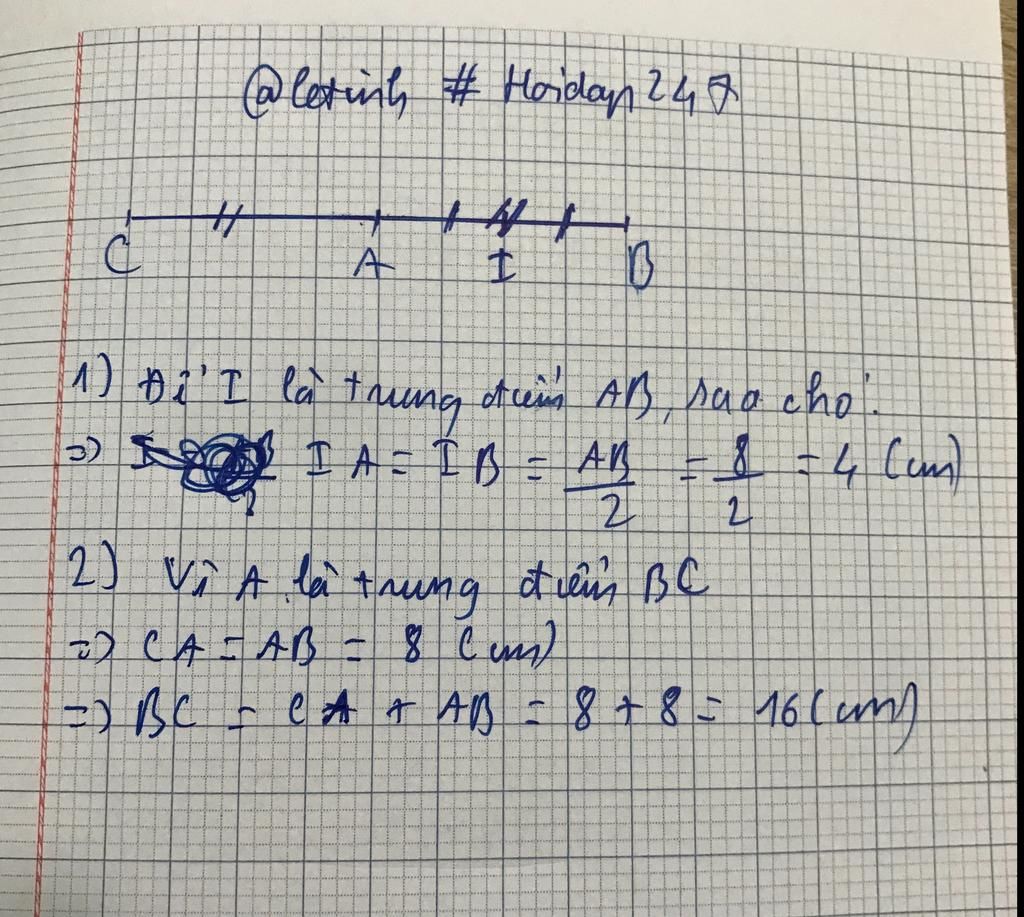 @letinh # Hoidap247
C A I B
1) Để I là trung điểm AB, sao cho:
=> IA = IB = AB/2 = 8/2 = 4 (cm)
2) Vì A là trung điểm BC
=> CA = AB = 8 (cm)
=> BC = CA + AB = 8 + 8 = 16 (cm)